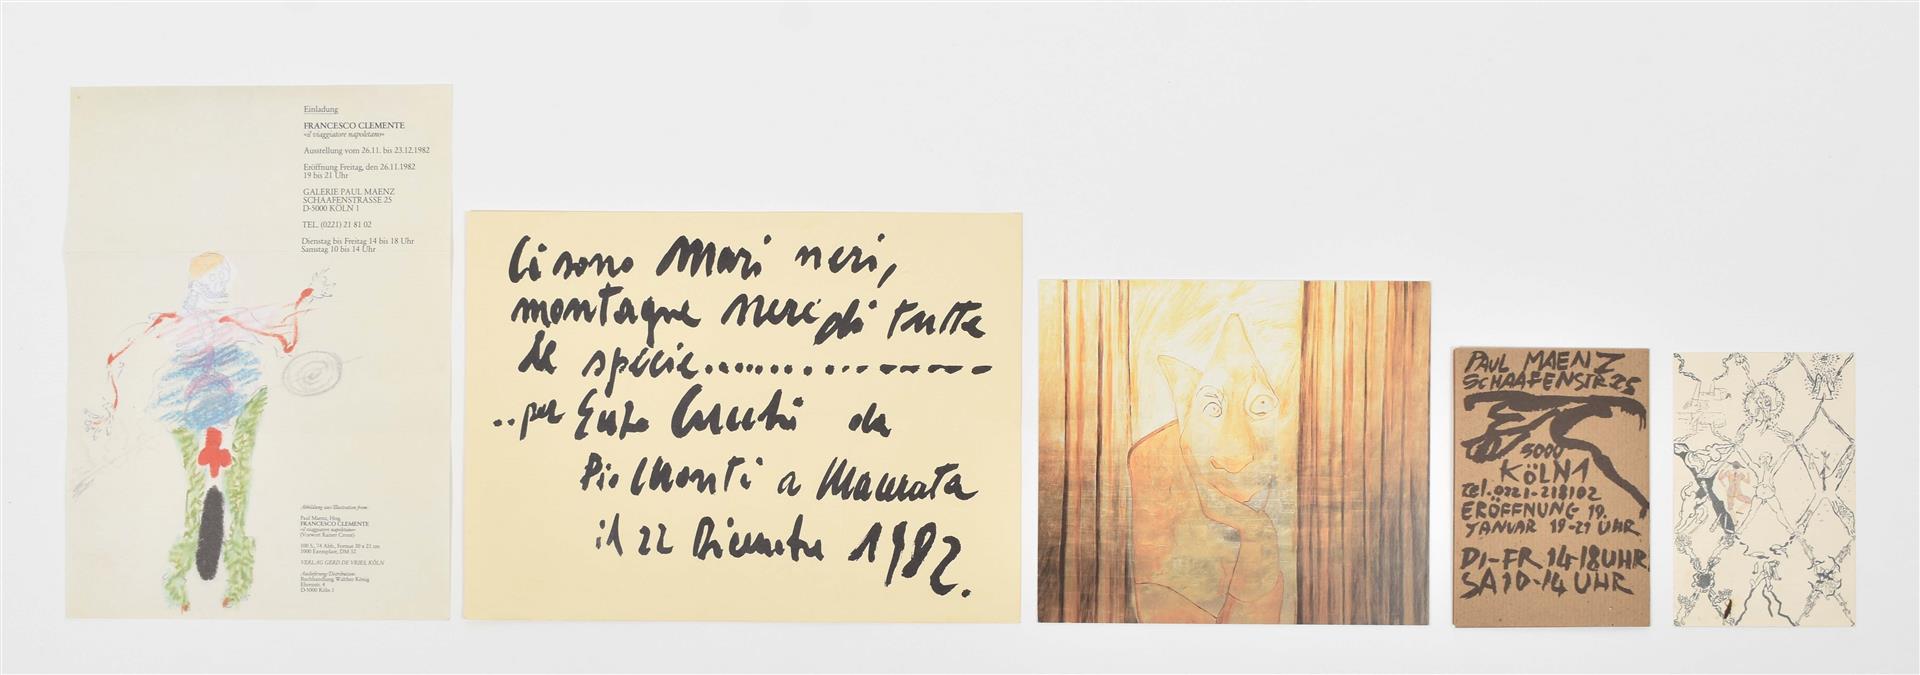 Einladung
FRANCESCO CLEMENTE
«il viaggiatore napoletano»
Ausstellung vom 26.11. bis 23.12.1982
Eröffnung Freitag, den 26.11.1982
19 bis 21 Uhr
GALERIE PAUL MAENZ
SCHAAFENSTRASSE 25
D-5000 KÖLN 1
TEL. (0221) 21 81 02
Dienstag bis Freitag 14 bis 18 Uhr
Samstag 10 bis 14 Uhr
Abbildung aus/Illustration from:
Paul Maenz, Hrsg.
FRANCESCO CLEMENTE
«il viaggiatore napoletano»
(Vorwort Rainer Crone)
100 S., 74 Abb., Format 30 x 21 cm
1000 Exemplare, DM 32
VERLAG GERD DE VRIES, KÖLN
Auslieferung/Distribution:
Buchhandlung Walther König
Ehrenstr. 4
D-5000 Köln 1
Ci sono Mari neri,
montagne neri di tutte
le specie.....................
..per Enzo Cucchi da
Pio Monti a Macerata
il 22 Dicembre 1982.
PAUL MAENZ
SCHAAFENSTR 25
5000
KÖLN 1
Tel. 0221-218102
ERÖFFNUNG 19.
JANUAR 19-21 UHR
DI-FR 14-18 UHR
SA 10-14 UHR